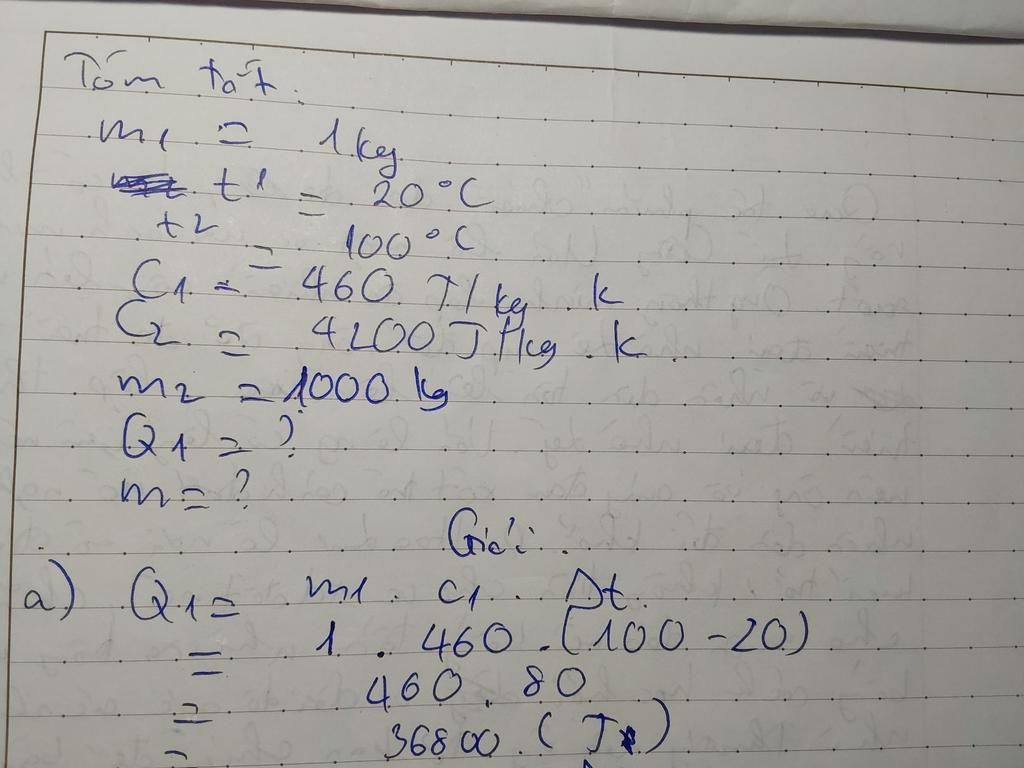 Tóm tắt.
m1 = 1kg
t1 = 20°C
t2 = 100°C
C1 = 460 J/kg k
C2 = 4200 J/kg.k.
m2 = 1000 kg
Q1 = ?
m = ?
Giải.
a) Q1 = m1 . c1 . Δt.
= 1 . 460 . (100 - 20)
= 460 . 80
= 36800 (J)